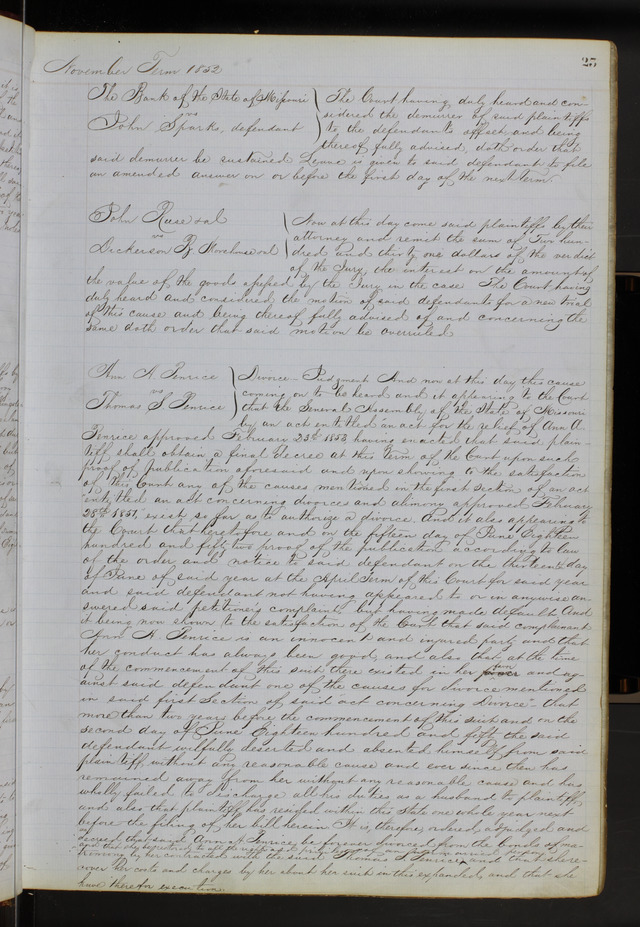 25
November Term 1852
The Bank of the State of Missouri
vs
John Sparks, defendant
The Court having duly heard and con-
sidered the demurrer of said plaintiffs
to the defendants offset and being
thereof fully advised, doth order that
said demurrer be sustained Leave is given to said defendant to file
an amended answer on or before the first day of the next term.
John Ruse et al
vs
Dickerson P. Morehouse et al
Now at this day come said plaintiffs by their
attorney and remit the sum of Two hun-
dred and thirty one dollars of the verdict
of the Jury, the interest on the amount of
the value of the goods assessed by the Jury in the case The Court having
duly heard and considered the motion of said defendants for a new trial
of this cause and being thereof fully advised of and concerning the
same doth order that said motion be overruled
Ann A. Penrice
vs
Thomas S. Penrice
Divorce - Judgment And now at this day this cause
coming on to be heard and it appearing to the Court
that the General Assembly of the State of Missouri
by an act entitled an act for the relief of Ann A.
Penrice approved February 23rd 1853 having enacted that said plain-
tiff shall obtain a final decree at this term of the Court upon such
proof of publication aforesaid and upon showing to the satisfaction
of this Court any of the causes mentioned in the first section of an act
entitled an act concerning divorce and alimony approved February
28th 1851, exist so far as to authorize a divorce. And it also appearing to
the Court that heretofore and on the fifteen day of June Eighteen
hundred and fifty two proof of the publication according to law
of the order and notice to said defendant on the thirteenth day
of June of said year at the April Term of this Court for said year
and said defendant not having appeared to or in anywise an-
swered said petitioners complaint but having made default And
it being now shown to the satisfaction of the Court that said complainant
Ann A. Penrice is an innocent and injured party and that
her conduct has always been good, and also that at the time
of the commencement of this suit there existed in her favor and ag-
ainst said defendant one of the causes for divorce mentioned
in said first section of said act concerning Divorce - that
more than two years before the commencement of this suit and on the
second day of June Eighteen hundred and fifty the said
defendant wilfully deserted and absented himself from said
plaintiff without any reasonable cause and ever since then has
remained away from her without any reasonable cause and has
wholly failed to discharge all his duties as a husband to plaintiff,
and also that plaintiff has resided within this State one whole year next
before the filing of her bill herein It is, therefore, ordered, adjudged and
decreed that said Ann A. Penrice, be forever divorced from the bonds of ma-
and that she be restored to all the rights and privileges of an
trimony by her contracted with the said Thomas S. Penrice, and that she re-
cover her costs and charges by her about her suit in this expended, and that she
have therefor execution.